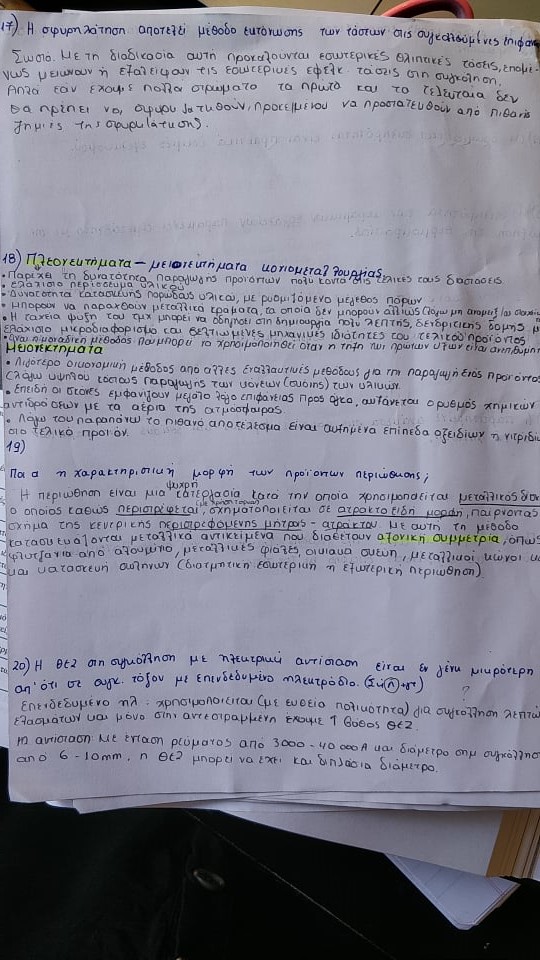 17) Η σφυρηλάτηση αποτελεί μέθοδο εκτόνωσης των τάσεων στις συγκολλούμενες επιφάν
Σωστό. Με τη διαδικασία αυτή προκαλούνται εσωτερικές θλιπτικές τάσεις, επομέ-
νως μειώνουν ή εξαλείφουν τις εσωτερικές εφελκ. τάσεις στη συγκόλληση.
Αλλά εάν έχουμε πολλά στρώματα το πρώτο και το τελευταίο δεν
θα πρέπει να σφυρηλατηθούν, προκειμένου να προστατευθούν από πιθανές
ζημιές της σφυρηλάτησης.
18) Πλεονεκτήματα – μειονεκτήματα κονιομεταλλουργίας
• Παρέχει τη δυνατότητα παραγωγής προϊόντων πολύ κοντά στις τελικές τους διαστάσεις.
• ελάχιστο περίσσευμα υλικού
• Δυνατότητα κατασκευής πορώδους υλικού, με ρυθμιζόμενο μέγεθος πόρων
• Μπορούν να παραχθούν μεταλλικά κράματα, τα οποία δεν μπορούν αλλιώς (λόγω μη
• Η ταχεία ψύξη του μπορεί να οδηγήσει στη δημιουργία πολύ λεπτής, δενδριτικής δομής με
ελάχιστο μικροδιαφορισμό και βελτιωμένες μηχανικές ιδιότητες του τελικού προϊόντος
• μοναδική μέθοδος που μπορεί να χρησιμοποιηθεί όταν η τήξη των πρώτων υλών είναι ανεπιθύμητη
Μειονεκτήματα
• Λιγότερο οικονομική μέθοδος από άλλες εναλλακτικές μεθόδους για την παραγωγή ενός προϊόντος
(λόγω υψηλού κόστους παραγωγής των κόνεων (σκόνης) των υλικών.
• Επειδή οι σκόνες εμφανίζουν μεγάλο λόγο επιφάνειας προς όγκο, αυξάνεται ο ρυθμός χημικών
αντιδράσεων με τα αέρια της ατμόσφαιρας.
• Λόγω του παραπάνω το πιθανό αποτέλεσμα είναι αυξημένα επίπεδα οξειδίων ή νιτριδίω
στο τελικό προϊόν.
19)
Ποια η χαρακτηριστική μορφή των προϊόντων περιώθησης;
ψυχρή
Η περιώθηση είναι μια κατεργασία κατά την οποία χρησιμοποιείται μεταλλικός δίσκ
ο οποίος καθώς περιστρέφεται, σχηματοποιείται σε ατρακτοειδή μορφή, παίρνοντας
σχήμα της κεντρικής περιστρεφόμενης μήτρας – ατράκτου. Με αυτή τη μέθοδο
κατασκευάζονται μεταλλικά αντικείμενα που διαθέτουν αξονική συμμετρία, όπως
φλυτζάνια από αλουμίνιο, μεταλλικές φιάλες, οικιακά σκεύη, μεταλλικοί κώνοι κα
και κατασκευή σωλήνων (διατμητική εσωτερική ή εξωτερική περιώθηση).
20) Η ΘΕΖ στη συγκόλληση με ηλεκτρική αντίσταση είναι εν γένει μικρότερη
απ' ότι σε συγκ. τόξου με επενδεδυμένο ηλεκτρόδιο. (Σ ή Λ)
?
Επενδεδυμένο ηλ: χρησιμοποιείται (με ευθεία πολικότητα) για συγκόλληση λεπτών
ελασμάτων και μόνο στην αντεστραμμένη έχουμε ↑ βάθος ΘΕΖ.
Η αντίσταση: Με ένταση ρεύματος από 3000 - 40 000 Α και διάμετρο σημ συγκόλλησ
από 6 - 10mm, η ΘΕΖ μπορεί να έχει και διπλάσια διάμετρο.